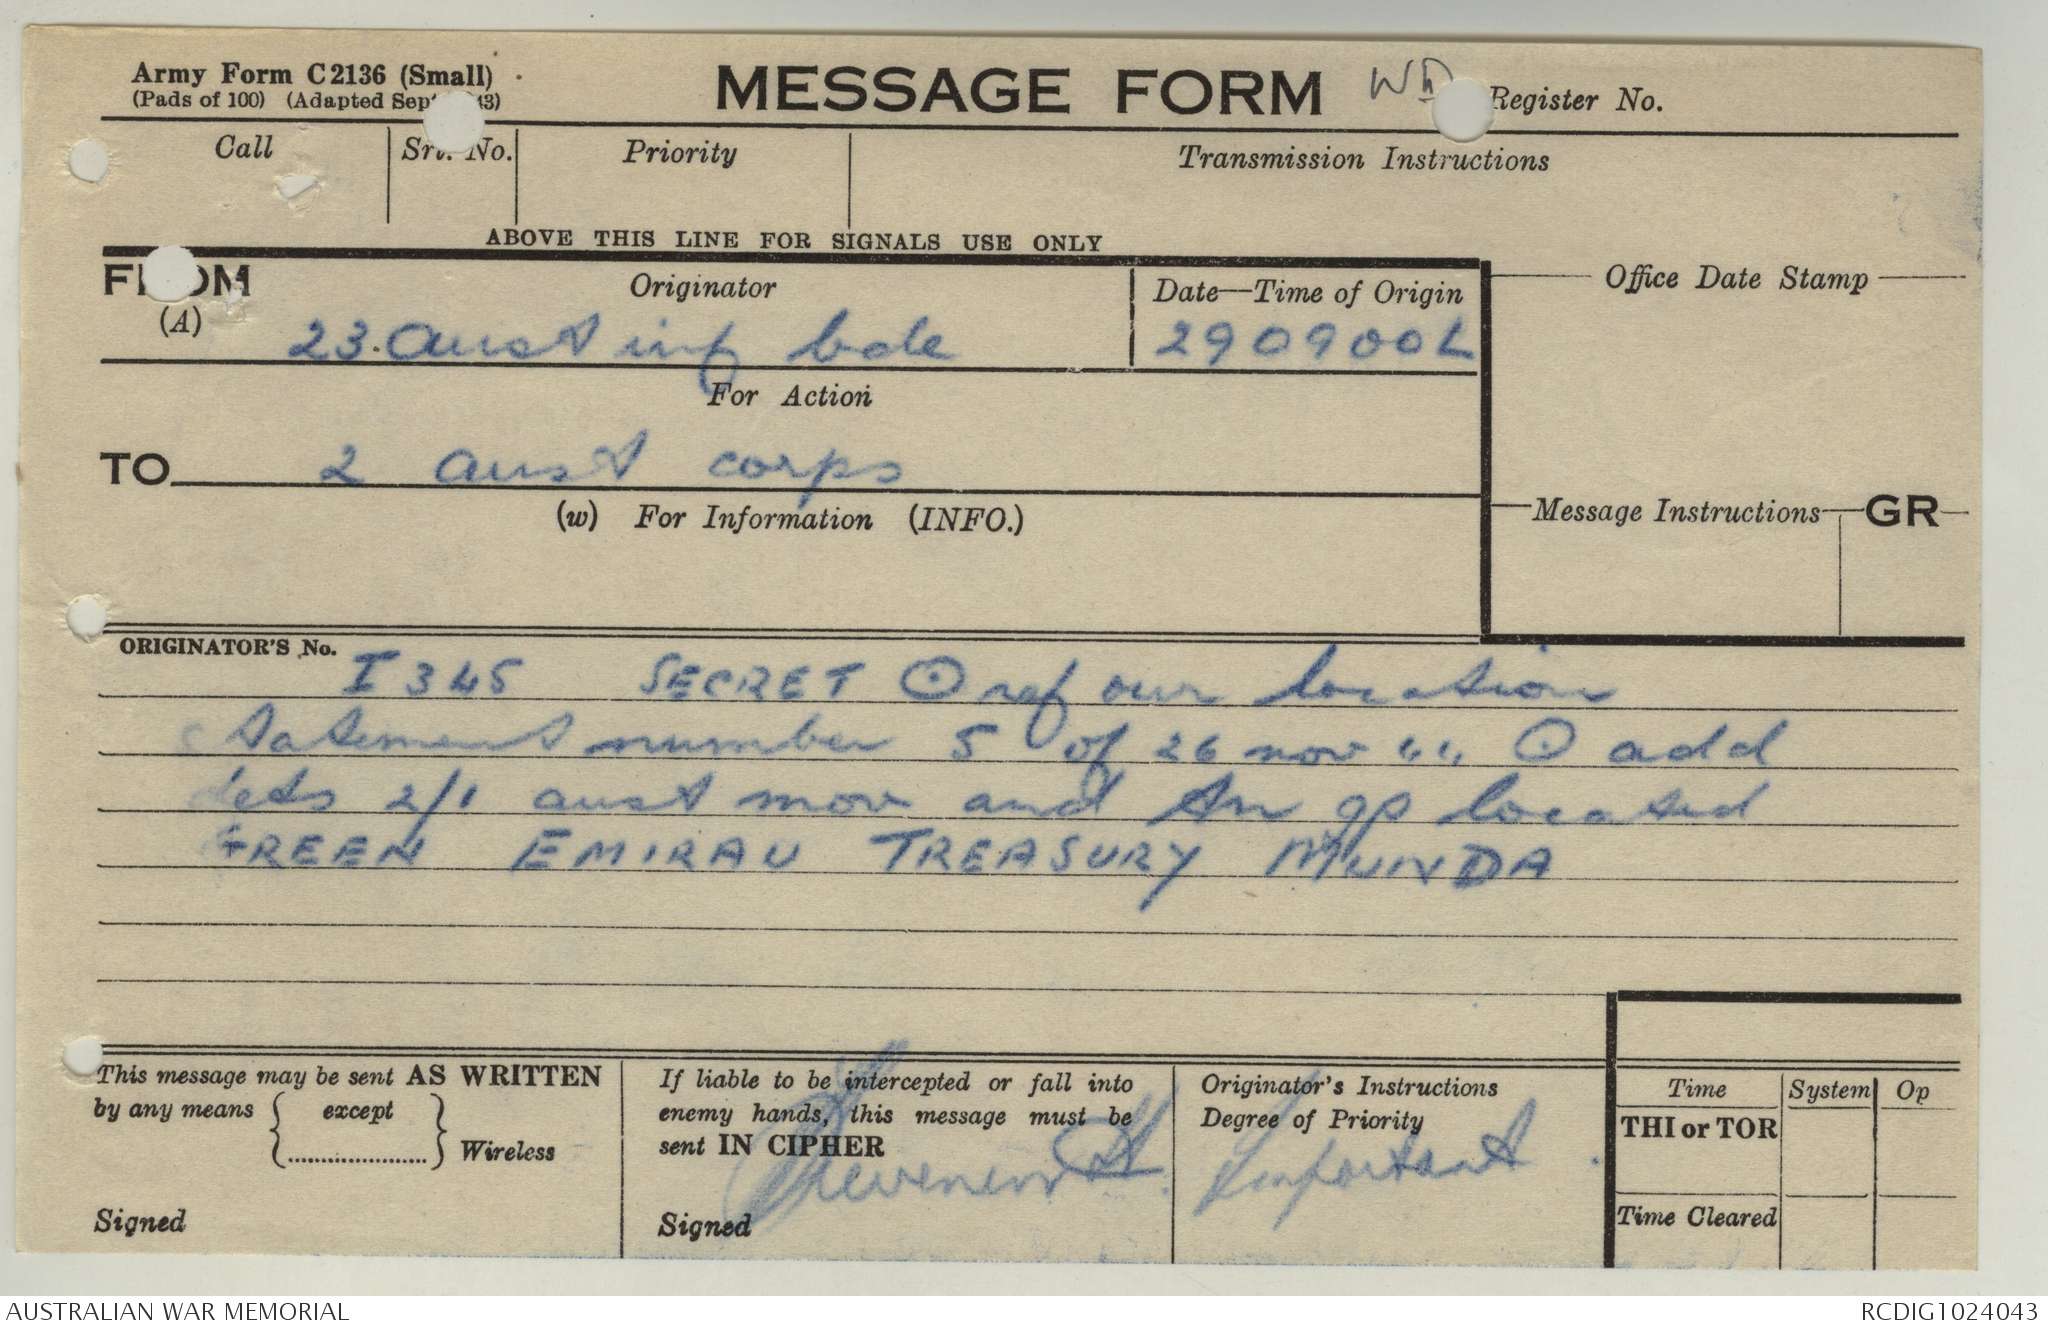 Army Form C2136 (Small)
(Pads of 100) (Adapted Sept. 43)
MESSAGE FORM
WD
Register No.
Call
Srl. No.
Priority
Transmission Instructions
ABOVE THIS LINE FOR SIGNALS USE ONLY
FROM
(A)
Originator
Date—Time of Origin
Office Date Stamp
23 Aust inf bde
290900L
For Action
TO 2 aust corps
(w) For Information (INFO.)
Message Instructions
GR
ORIGINATOR'S No.
I 345 SECRET ⊙ ref our location
statement number 5 of 26 nov "" ⊙ add
dets 2/1 aust mov and tn gp located
GREEN EMIRAU TREASURY MUNDA
This message may be sent AS WRITTEN
by any means { except ..................... } Wireless
Signed
If liable to be intercepted or fall into
enemy hands, this message must be
sent IN CIPHER
Signed
Originator's Instructions
Degree of Priority
Important
Time
System
Op
THI or TOR
Time Cleared
AUSTRALIAN WAR MEMORIAL
RCDIG1024043